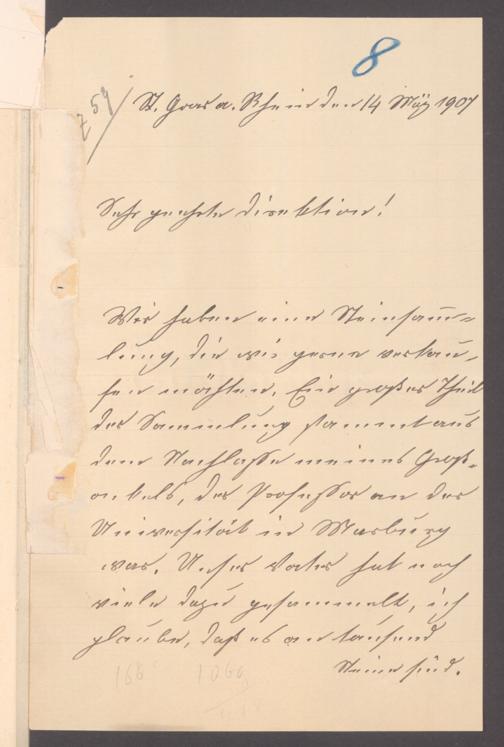 8
Z 59/
St. Goar a. Rhein den 14 März 1907
Sehr geehrte Direktion!
Wir haben eine Steinsam=
lung, die wir gerne verkau-
fen möchten. Ein großer Theil
der Sammlung stammt aus
dem Nachlasse meines Groß-
onkels, der Professor an der
Universität in Marburg
war. Unser Vater hat noch
viele dazu gesammelt, ich
glaube, daß es an tausend
Steine sind.